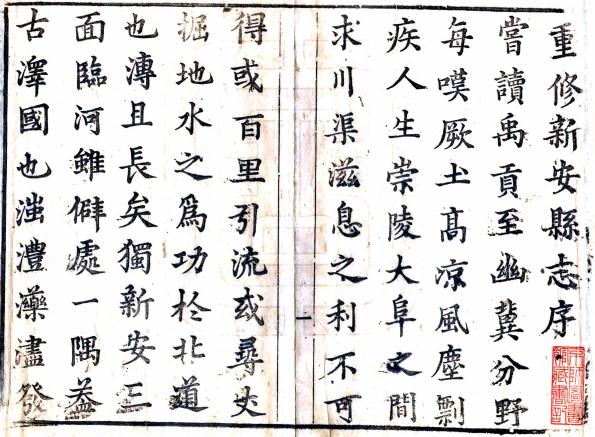 重修新安縣志序
嘗讀禹貢至幽冀分野
每嘆厥土髙涼風塵剽
疾人生崇陵大阜之間
求川渠滋息之利不可
一
得或百里引流或尋丈
掘地水之爲功於北道
也溥且長矣獨新安三
面臨河雖僻處一隅葢
古澤國也澧濜發
京師圖書
館藏書記